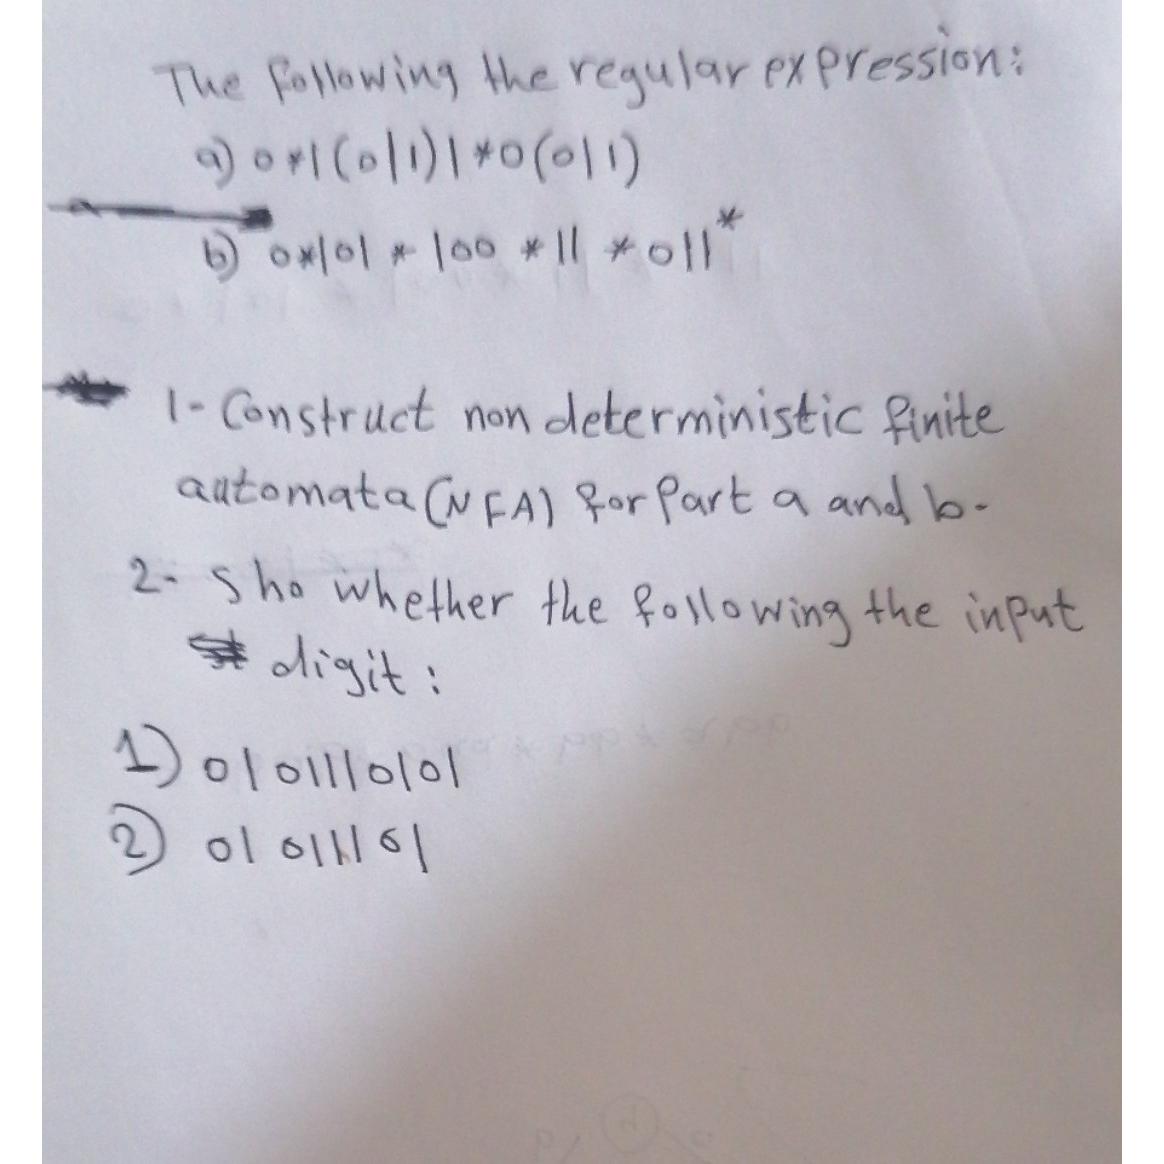 The following the regular expression:
a) 0*1(0|1)1*0(0|1)
b) 0*101*100*11*011*
1- Construct non deterministic finite
automata (NFA) for Part a and b-
2- Sho whether the following the input
digit:
1) 0101110101
2) 01011101